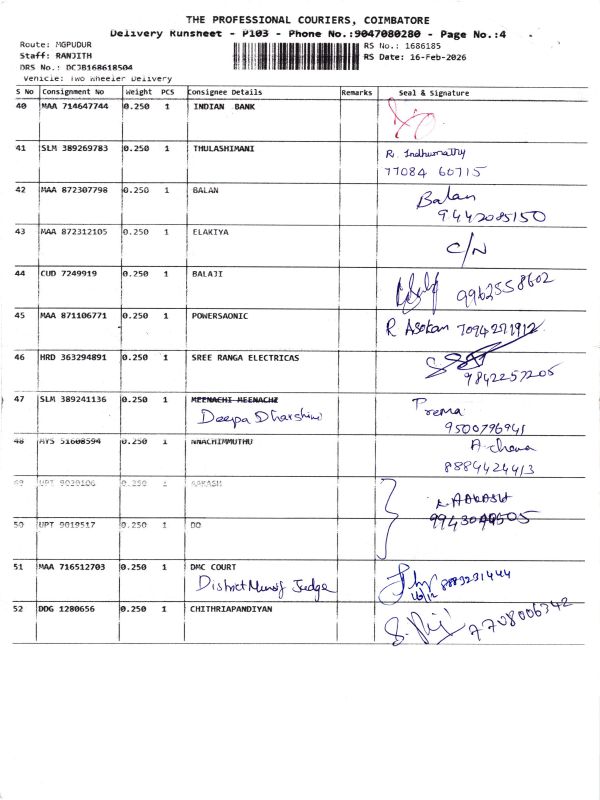 THE PROFESSIONAL COURIERS, COIMBATORE
Delivery Runsheet - P103 - Phone No.:9047080280 - Page No.:4
Route: MGPUDUR
Staff: RANJITH
DRS No.: DCJB168618504
Vehicle: Two Wheeler Delivery
RS No.: 1686185
RS Date: 16-Feb-2026
S No Consignment No Weight PCS Consignee Details Remarks Seal & Signature
40 MAA 714647744 0.250 1 INDIAN BANK
41 SLM 389269783 0.250 1 THULASHIMANI R. Indhumathy
77084 60715
42 MAA 872307798 0.250 1 BALAN Balan
9442085150
43 MAA 872312105 0.250 1 ELAKIYA C/N
44 CUD 7249919 0.250 1 BALAJI 9962558602
45 MAA 871106771 0.250 1 POWERSAONIC R Asokan 7094271912
46 HRD 363294891 0.250 1 SREE RANGA ELECTRICAS
9842257205
47 SLM 389241136 0.250 1 MEENACHI MEENACHI Prema
Deepa Dharshini 9500796941
48 AYS 51608594 0.250 1 NNACHIMMUTHU
8884424413
49 UPT 9020106 0.250 1 AAKASH AAKASH
50 UPT 9019517 0.250 1 DO
51 MAA 716512703 0.250 1 DMC COURT 8883231444
District Munsif Judge 16/12
52 DDG 1280656 0.250 1 CHITHRIAPANDIYAN 7708006342